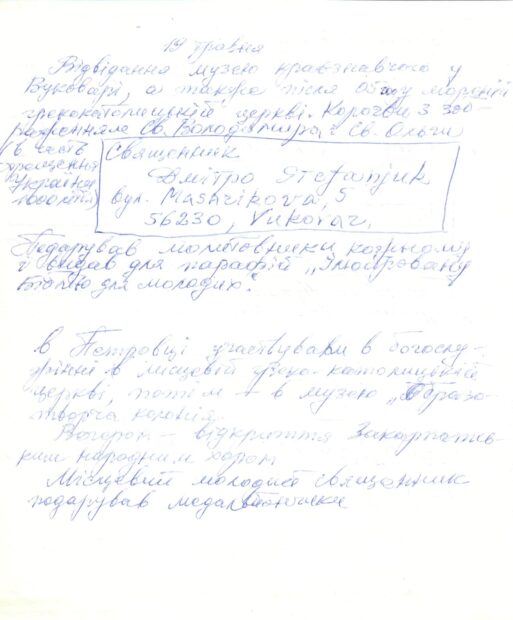 19 травня
Відвідання музею краєзнавчого у
Вуковарі, а також після обіду
грекокатолицькій церкві. Корогви з зоб-
раженням Св. Володимира і Св. Ольги
(в честь
хрещення
України
1000 ліття)
Священник
Дмітро Stefanjuk
вул. Mashrikova, 5
56230, Vukovar.
Подарував молитовники кожному
і видав для парафій „Ілюстровану
Біблію для молоді".
в Петровці участвували в богослу-
жінні в місцевій греко-католицькій
церкві, потім – в музею „Образо-
творча колонія
Вечером – відкриття Закарпатсь-
ким народним хором
Місцевий молодий священник
подарував медальйончики